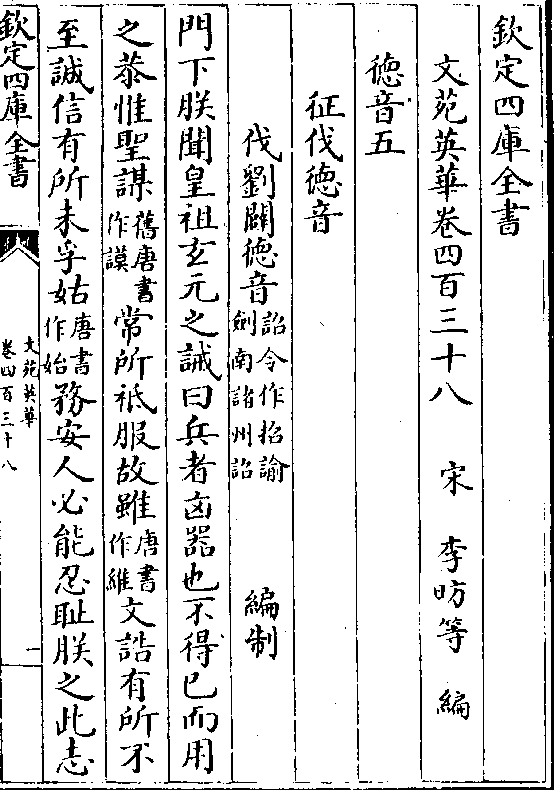 欽定四庫全書
文苑英華卷四百三十八　宋　李昉等　編
德音五
征伐德音
伐劉闢德音詔令作招諭劍南諸州詔　編制
門下朕聞皇祖玄元之誡曰兵者凶器也不得已而用
之恭惟聖謀舊唐書作謨常所祗服故雖唐書作維文誥有所不
至誠信有所未孚姑唐書作始務安人必能忍耻朕之此志
欽定四庫全書
文苑英華
卷四百三十八
一